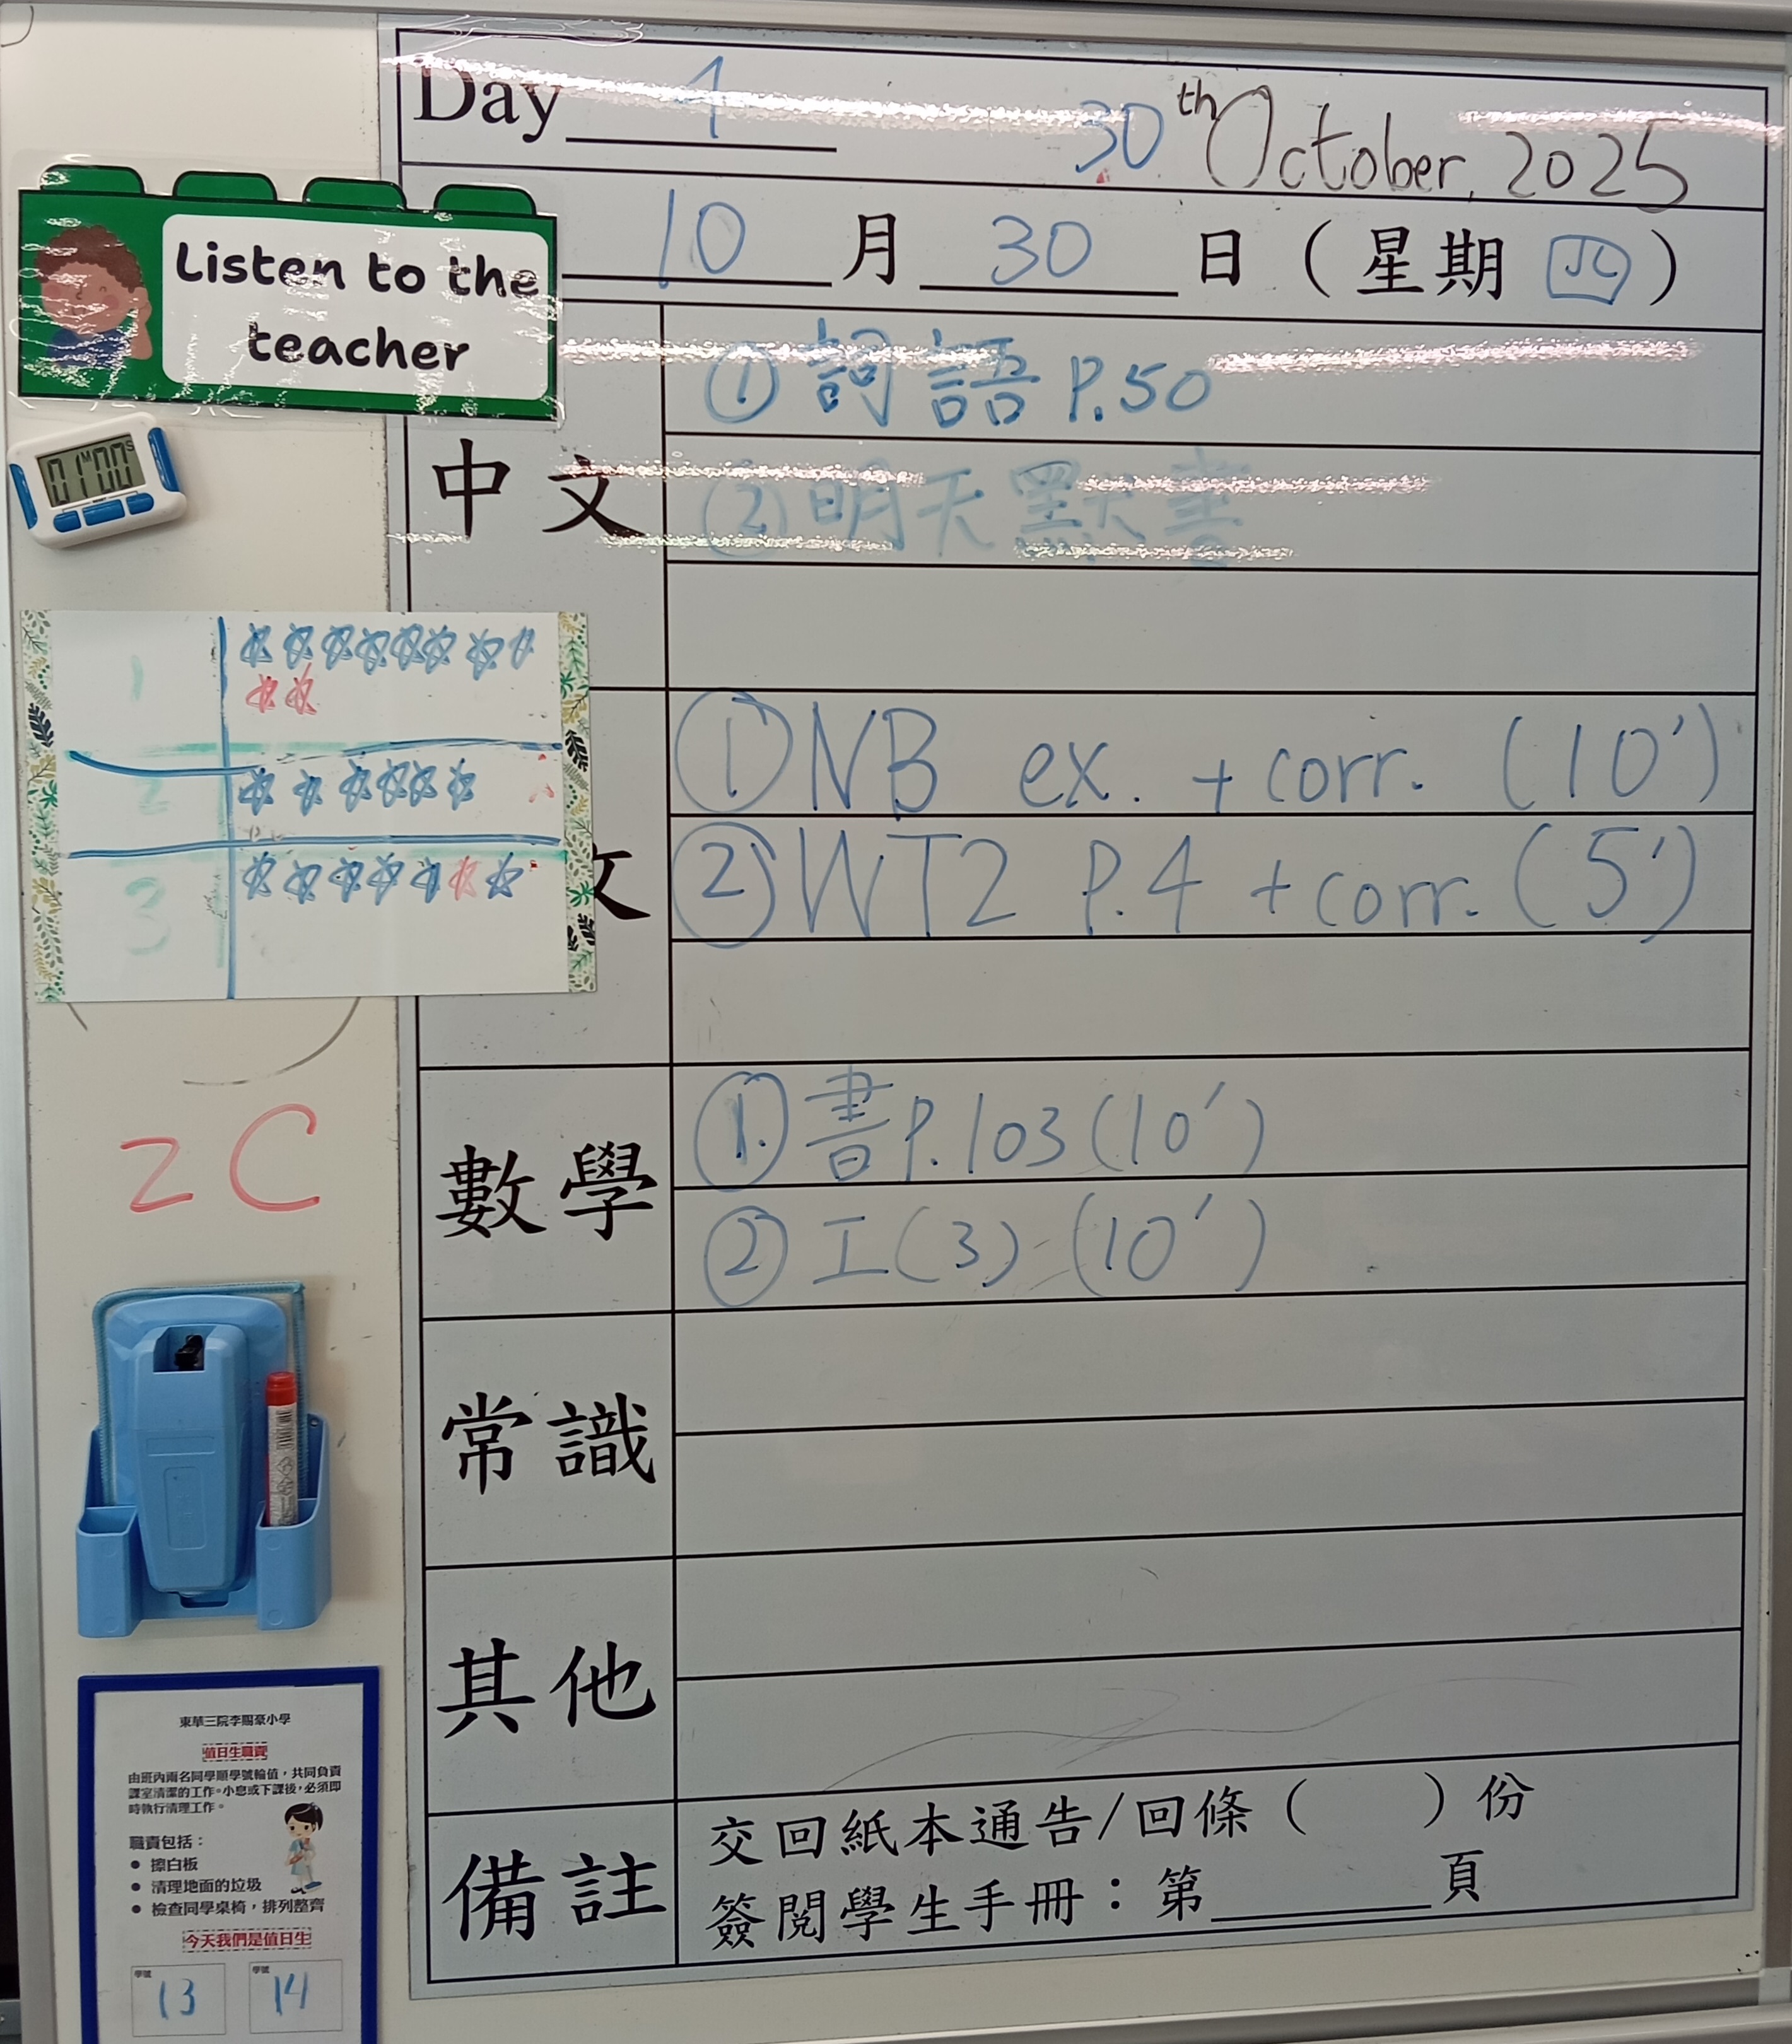 Day 1 30th October, 2025
10 月 30 日 (星期 四)
Listen to the
teacher
01M00S
中文
① 詞語 P.50
② 明天默書
文
① NB ex. + corr. (10')
② WT2 P.4 + corr. (5')
1
2
3
2C
數學
① 書 P.103 (10')
② 工(3) (10')
常識
其他
備註
交回紙本通告/回條 ( ) 份
簽閱學生手冊：第______頁
東華三院李賜豪小學
值日生職責
由班內兩名同學順學號輪值，共同負責
課室清潔的工作。小息或下課後，必須即
時執行清理工作。
職責包括：
● 擦白板
● 清理地面的垃圾
● 檢查同學桌椅，排列整齊
今天我們是值日生
學號 13 學號 14